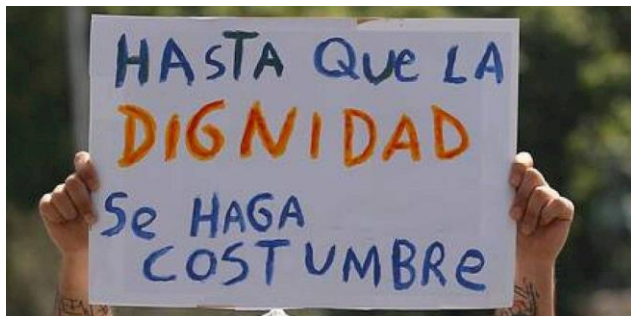 HASTA QUe LA
DIGNIDAD
Se HAGA
COSTUMBRe